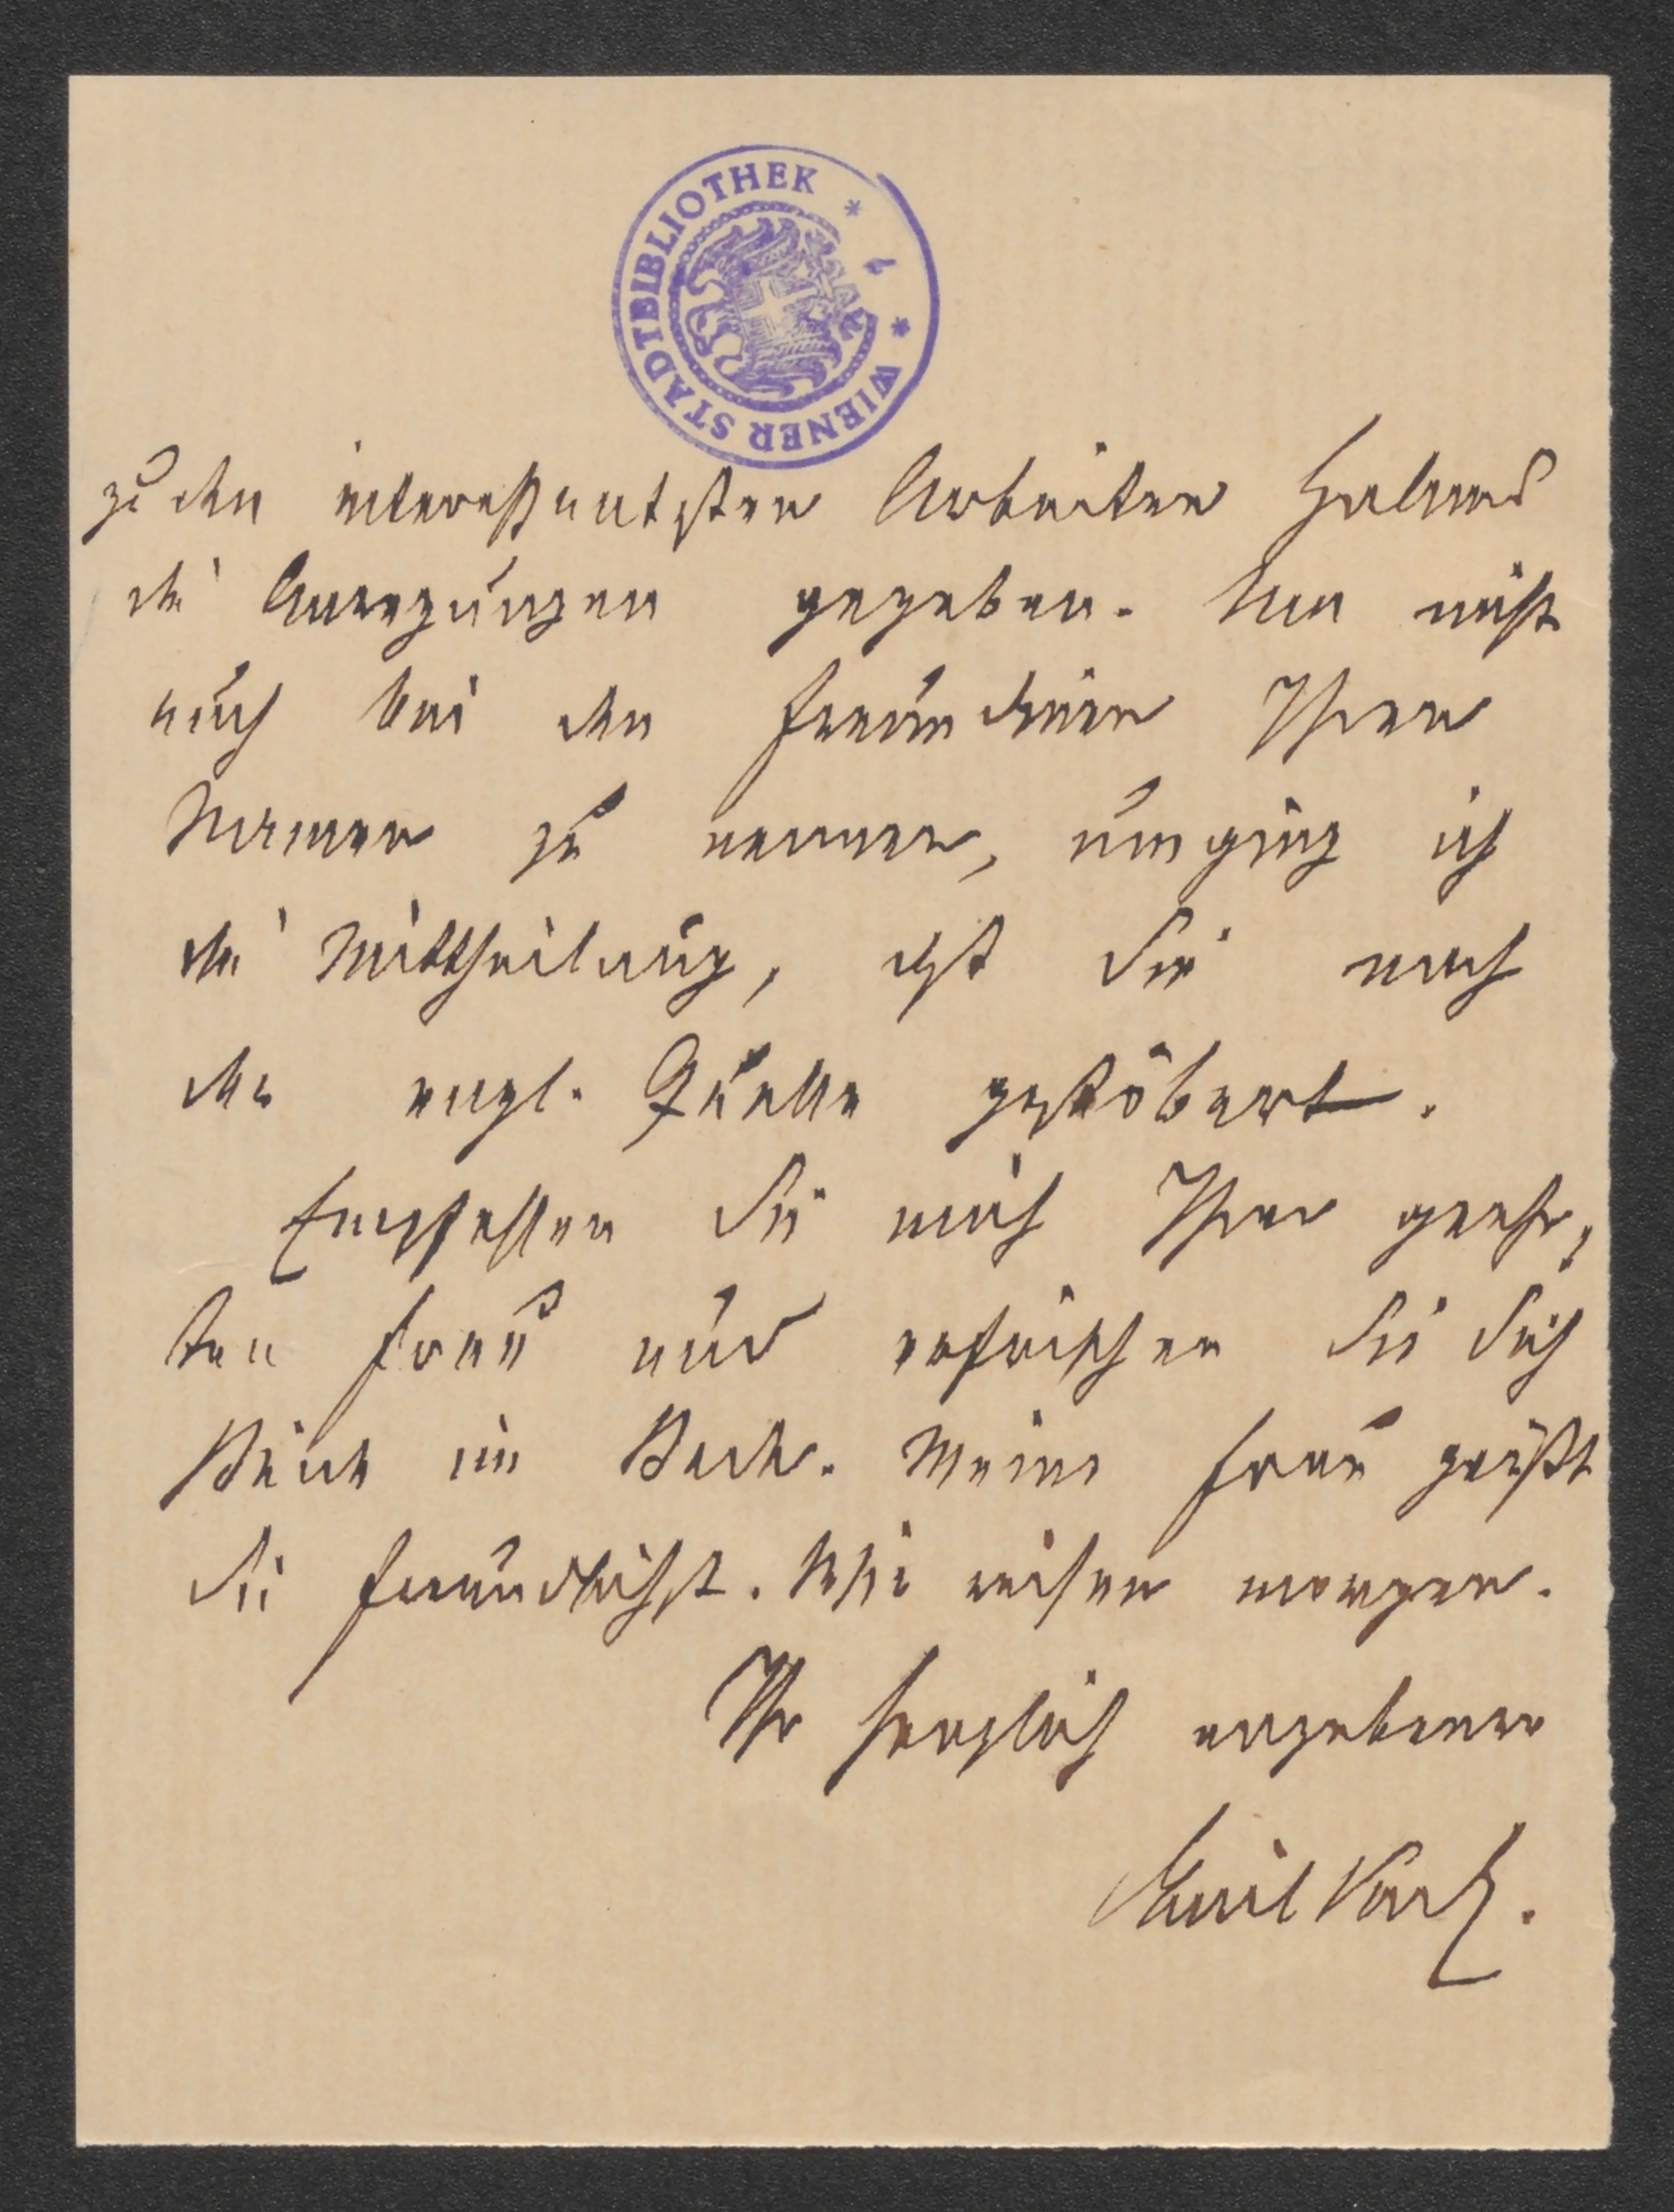 WIENER STADTBIBLIOTHEK
zu den interessantesten Arbeiten Halms
die Anregungen gegeben. Um nicht
auch bei den Freunden Ihren
Namen zu nennen, umging ich
die Mittheilung, daß Sie nach
der engl. Quelle gestöbert.
Empfehlen Sie mich Ihrer geehr-
ten Frau und erfrischen Sie Sich
Beide im Bade. Meine Frau grüßt
Sie freundlichst. Wir reisen morgen.
Ihr herzlich ergebener
Emil